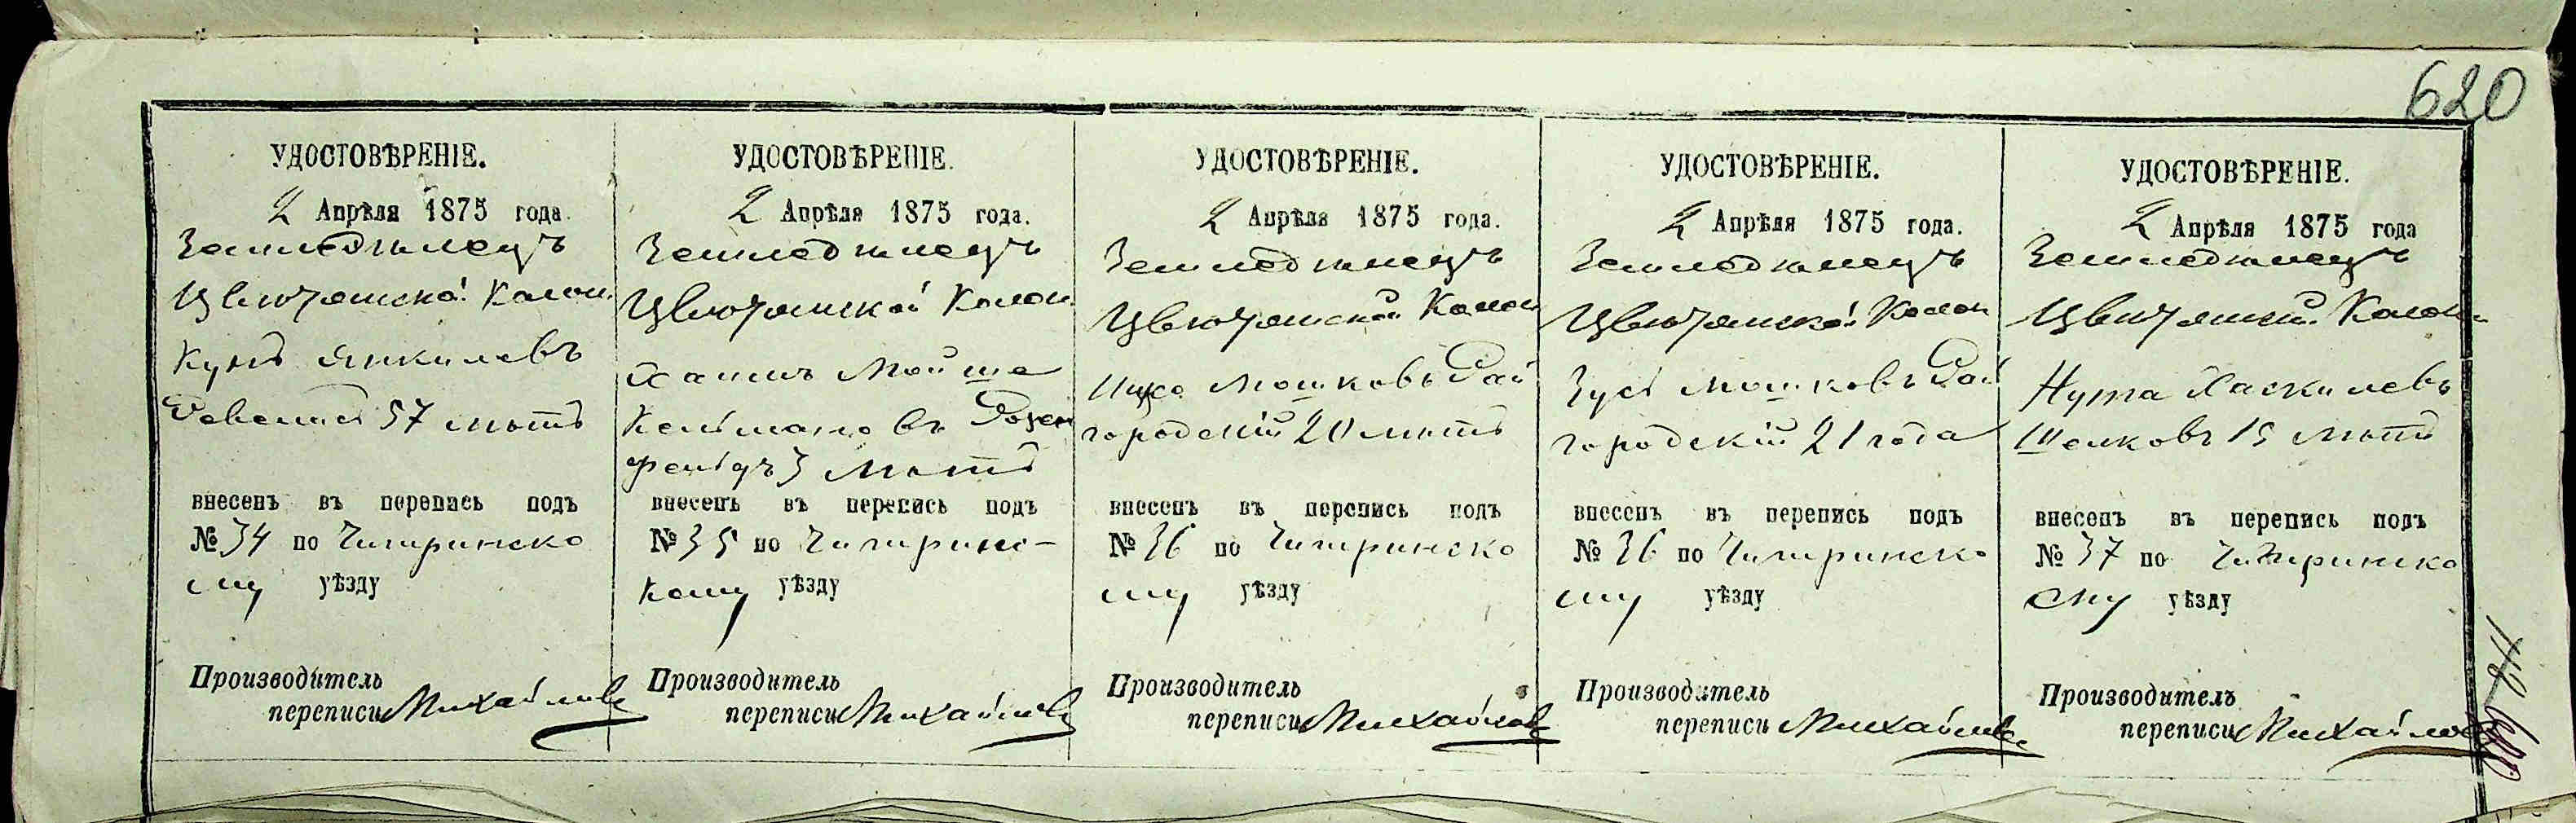 620
УДОСТОВѢРЕНІЕ.
2 Апрѣля 1875 года.
Земледѣлецъ
Колон.
Янкилевъ
57 лѣтъ
внесенъ въ перепись подъ
№ 34 по Чигиринско
му уѣзду
Производитель
переписи Михайловъ
УДОСТОВѢРЕНІЕ.
2 Апрѣля 1875 года.
Земледѣлецъ
Колон.
Хаимъ Мойше
Кельмановъ Розен
фельдъ 3 лѣтъ
внесенъ въ перепись подъ
№ 35 по Чигиринс-
кому уѣзду
Производитель
переписи Михайловъ
УДОСТОВѢРЕНІЕ.
2 Апрѣля 1875 года.
Земледѣлецъ
Колон
Ицко Мошковъ Рай
городскій 20 лѣтъ
внесенъ въ перепись подъ
№ 36 по Чигиринско
му уѣзду
Производитель
переписи Михайловъ
УДОСТОВѢРЕНІЕ.
2 Апрѣля 1875 года.
Земледѣлецъ
Колон
Зусь Мошковъ Рай
городскій 21 года
внесенъ въ перепись подъ
№ 36 по Чигиринско
му уѣзду
Производитель
переписи Михайловъ
УДОСТОВѢРЕНІЕ.
2 Апрѣля 1875 года
Земледѣлецъ
Колон
Нута Хаскилевъ
15 лѣтъ
внесенъ въ перепись подъ
№ 37 по Чигиринско
му уѣзду
Производитель
переписи Михайловъ